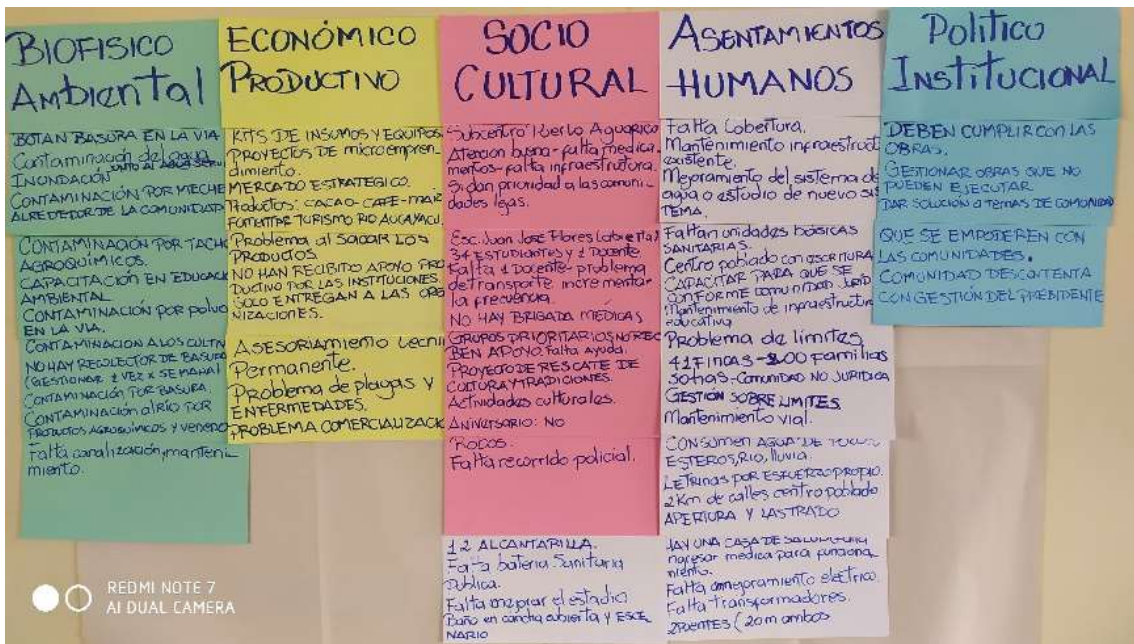 BIOFISICO
AMbiental
BOTAN BASURA EN LA VIA
Contaminación del agua
INUNDACIÓN JUNTO AL
CONTAMINACIÓN POR MECHE
ALREDEDOR DE LA COMUNIDAD
CONTAMINACIÓN POR TACHO
AGROQUÍMICOS.
CAPACITACIÓN EN EDUCAC
AMBIENTAL
CONTAMINACIÓN POR POLVO
EN LA VIA.
CONTAMINACION A LOS CULTIV
NO HAY RECOLECTOR DE BASURA
(GESTIONAR 1 VEZ X SEMANA)
CONTAMINACIÓN POR BASURA.
CONTAMINACIÓN al RÍO POR
PRODUCTOS AGROQUIMICOS Y VENENO
Falta canalización, manteni
miento.
ECONÓMICO
PRODUCTIVO
KITS DE INSUMOS Y EQUIPOS
PROYECTOS DE microempren-
dimiento.
MERCADO ESTRATEGICO.
Productos: CACAO-CAFE-MAIZ
FOMENTAR TURISMO RIO
Problema al SACAR LOS
PRODUCTOS
NO HAN RECIBIDO APOYO PRO
DUCTIVO POR LAS INSTITUCIONES.
SOLO ENTREGAN A LAS ORG
NIZACIONES.
ASESORIAMIENTO tecni
Permanente.
Problema de plagas y
ENFERMEDADES.
PROBLEMA COMERCIALIZAC
SOCIO
CULTURAL
Subcentro Puerto Aguarico
Atencion buena-falta medica
mentos-falta infraestrutura.
Si dan prioridad a las comuni-
dades lejas.
Esc. Juan Jose Flores
34 ESTUDIANTES y 1 Docente
Falta 1 Docente-problema
de transporte incrementar
la frecuencia.
NO HAY BRIGADA MÉDICAS
GRUPOS PRIORITARIOS NO RECI
BEN APOYO. Falta ayuda.
PROYECTO DE RESCATE DE
CULTURA Y TRADICIONES.
Actividades culturales.
Aniversario: NO
Robos.
Falta recorrido policial.
12 ALCANTARILLA.
Falta bateria Sanitaria
Publica.
Falta mejorar el estadio
Baño en cancha cubierta y ESCE
NARIO
ASENTAMIENTOS
HUMANOS
Falta Cobertura.
Mantenimiento infraestruct
existente.
Mejoramiento del sistema de
agua o estudio de nuevo sis
TEMA.
Faltan unidades básicas
SANITARIAS.
Centro poblado con escritura
CAPACITAR PARA QUE SE
CONFORME COMUNIDAD
Mantenimiento de infraestructura
educativa
Problema de límites
41 FINCAS-200 familias
Comunidad NO JURIDICA
GESTION SOBRE LIMITES
Mantenimiento vial.
CONSUMEN AGUA DE
ESTEROS, RIO, lluvia.
LETRINAS POR ESFUERZO PROPIO.
2 Km de calles centro poblado
APERTURA Y LASTRADO
HAY UNA CASA DE SALUD
ingresar medica para funciona
miento.
Falta mejoramiento electrico
Falta transformadores.
2 PUENTES (20m ambos
Politico
Institucional
DEBEN CUMPLIR CON LAS
OBRAS.
GESTIONAR OBRAS QUE NO
PUEDEN EJECUTAR
DAR SOLUCIÓN a TEMAS DE COMUNIDAD
QUE SE EMPODEREN CON
LAS COMUNIDADES.
COMUNIDAD DESCONTENTA
CON GESTIÓN DEL PRESIDENTE
REDMI NOTE 7
AI DUAL CAMERA